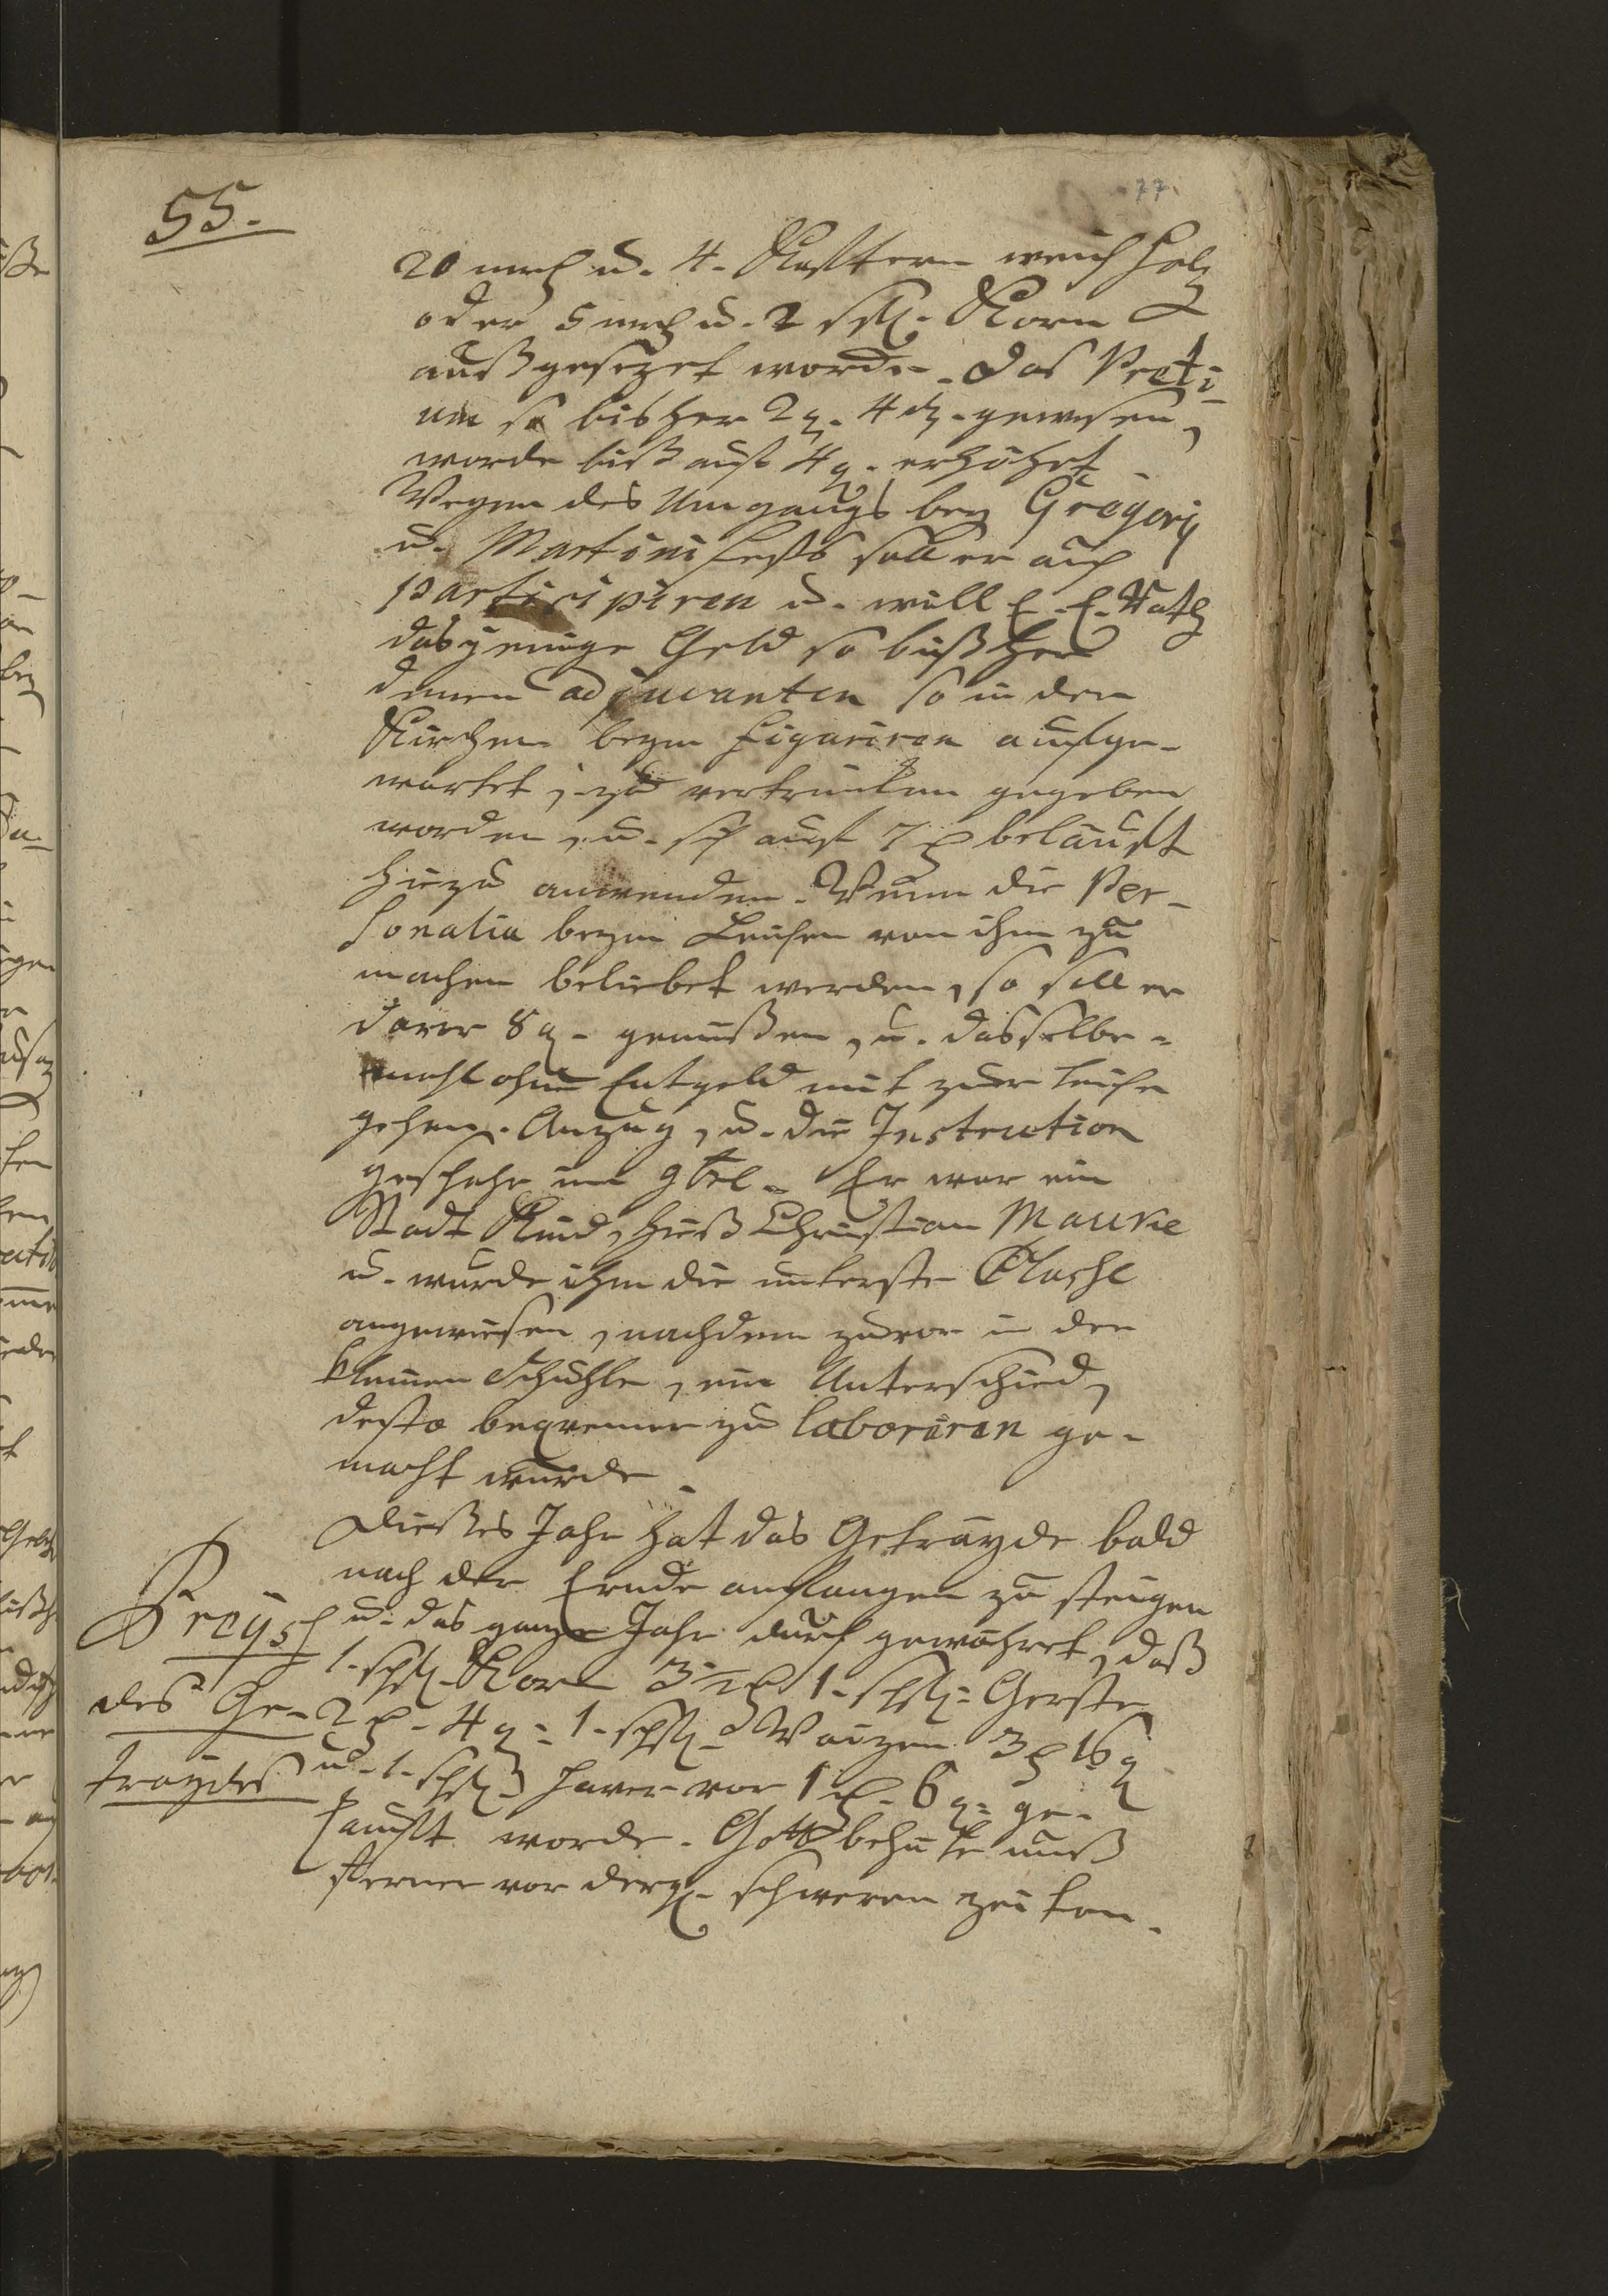 55.
77.
20 mß u. 4. Klafftern weich Holz
oder 5 mß u. 2 ssl. Korn
außgesezet worden. Das Preti-
um so bisher 2 g. 4 d. gewesen,
worde biß auf 4 g. erhöhet
Wegen des Umgangs bey Gregorij
u. Martini Fests soll er auch
participiren u. will E. E. Rath
dasjenige Geld so bißher
denen adjuvanten so in der
Kirchen beym Figuriren aufge-
wartet, zu vertrincken gegeben
worden, u. sich auf 7 beläufft
hiezu anwenden. Wenn die Per-
sonalia beym Leichen von ihm zu
machen beliebet werden, so soll er
davor 8 g. genüßen, u. dasselbe-
mahl ohne Entgeld mit zur Leiche
gehen. Anzug, u. die Instruction
geschahe im 9br. Er war ein
Stadt Kind, hieß Christian Mauke
u. wurde ihm die unterste Classe
angewiesen, nachdem zuvor in der
kleinen Schuhle, ein Unterschied,
desto beqvemer zu laboriren ge-
macht wurde.
Dießes Jahr hat das Geträyde bald
nach der Erndte anfangen zu steigen
Preyß u. das ganze Jahr durch gewähret, daß
1. schl. Korn 3 1. schl. Gerste
des Ge- 2 4 g. 1. schl. Waizen 3 16 g
traydes u. 1. schl. Haver vor 1 6 g. ge-
kaufft worde. Gott behüte unß
ferner vor dergl. schweren Zeiten.